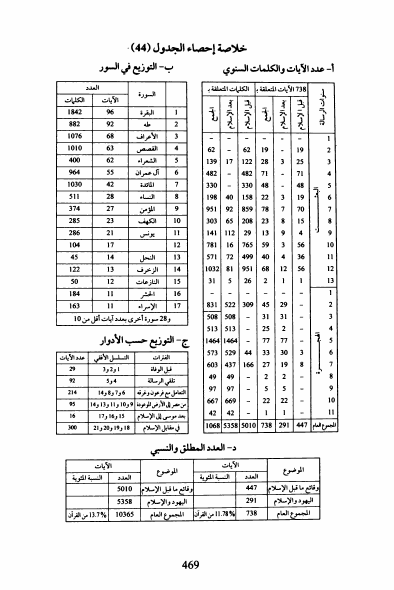 خلاصة إحصاء الجدول (44)
أ- عدد الآيات والكلمات السنوي
سنوات الرسالة 738 الآيات المتعلقة بـ الكلمات المتعلقة بـ
قبل الإسلام بعد الإسلام الجميع قبل الإسلام بعد الإسلام الجميع
1 - - - - - -
2 19 - 19 62 - 62
3 25 3 28 122 17 139
4 71 - 71 482 - 482
5 48 - 48 330 - 330
6 19 3 22 158 40 198
7 70 7 78 859 92 951
8 15 8 23 208 65 303
9 4 9 13 29 112 141
10 56 3 59 765 16 781
11 36 4 40 499 72 571
12 56 12 68 951 81 1032
13 1 1 2 26 5 31
1 - - - - - -
2 - 29 45 309 522 831
3 - 31 31 - 508 508
4 - 2 25 - 513 513
5 - 77 77 - 1464 1464
6 3 30 33 44 529 573
7 8 19 27 166 437 603
8 - 2 2 - 49 49
9 - 5 5 - 97 97
10 - 22 22 - 669 667
11 - 1 1 - 42 42
المجموع العام 447 291 738 5010 5358 1068
ب- التوزيع في السور
السورة العدد
الآيات الكلمات
1 البقرة 96 1842
2 طه 92 882
3 الأعراف 68 1076
4 القصص 63 1010
5 الشعراء 62 400
6 آل عمران 55 964
7 المائدة 42 1030
8 النساء 28 511
9 المؤمن 27 374
10 الكهف 23 285
11 يونس 21 286
12 17 104
13 النحل 14 45
14 الزخرف 13 122
15 النازعات 12 50
16 الحشر 11 184
17 الإسراء 11 163
و28 سورة أخرى بعدد آيات أقل من 10
ج- التوزيع حسب الأدوار
الفترات التسلسل الأفقي عدد الآيات
قبل الولادة 1و2و3 29
تلقي الرسالة 4و5 92
التعامل مع فرعون وفرقه 6و7و8و14 214
من مصر إلى الأرض الموعودة 9و10و11و13و14 95
بعد موسى إلى الإسلام 15و16و17 16
في مقابل الإسلام 18و19و20و21 300
د- العدد المطلق والنسبي
الموضوع الآيات الموضوع الآيات
العدد النسبة المئوية العدد النسبة المئوية
وقائع ما قبل الإسلام 447 وقائع ما قبل الإسلام 5010
اليهود والإسلام 291 اليهود والإسلام 5358
المجموع العام 738 11.78% من القرآن المجموع العام 10365 13.7% من القرآن
469